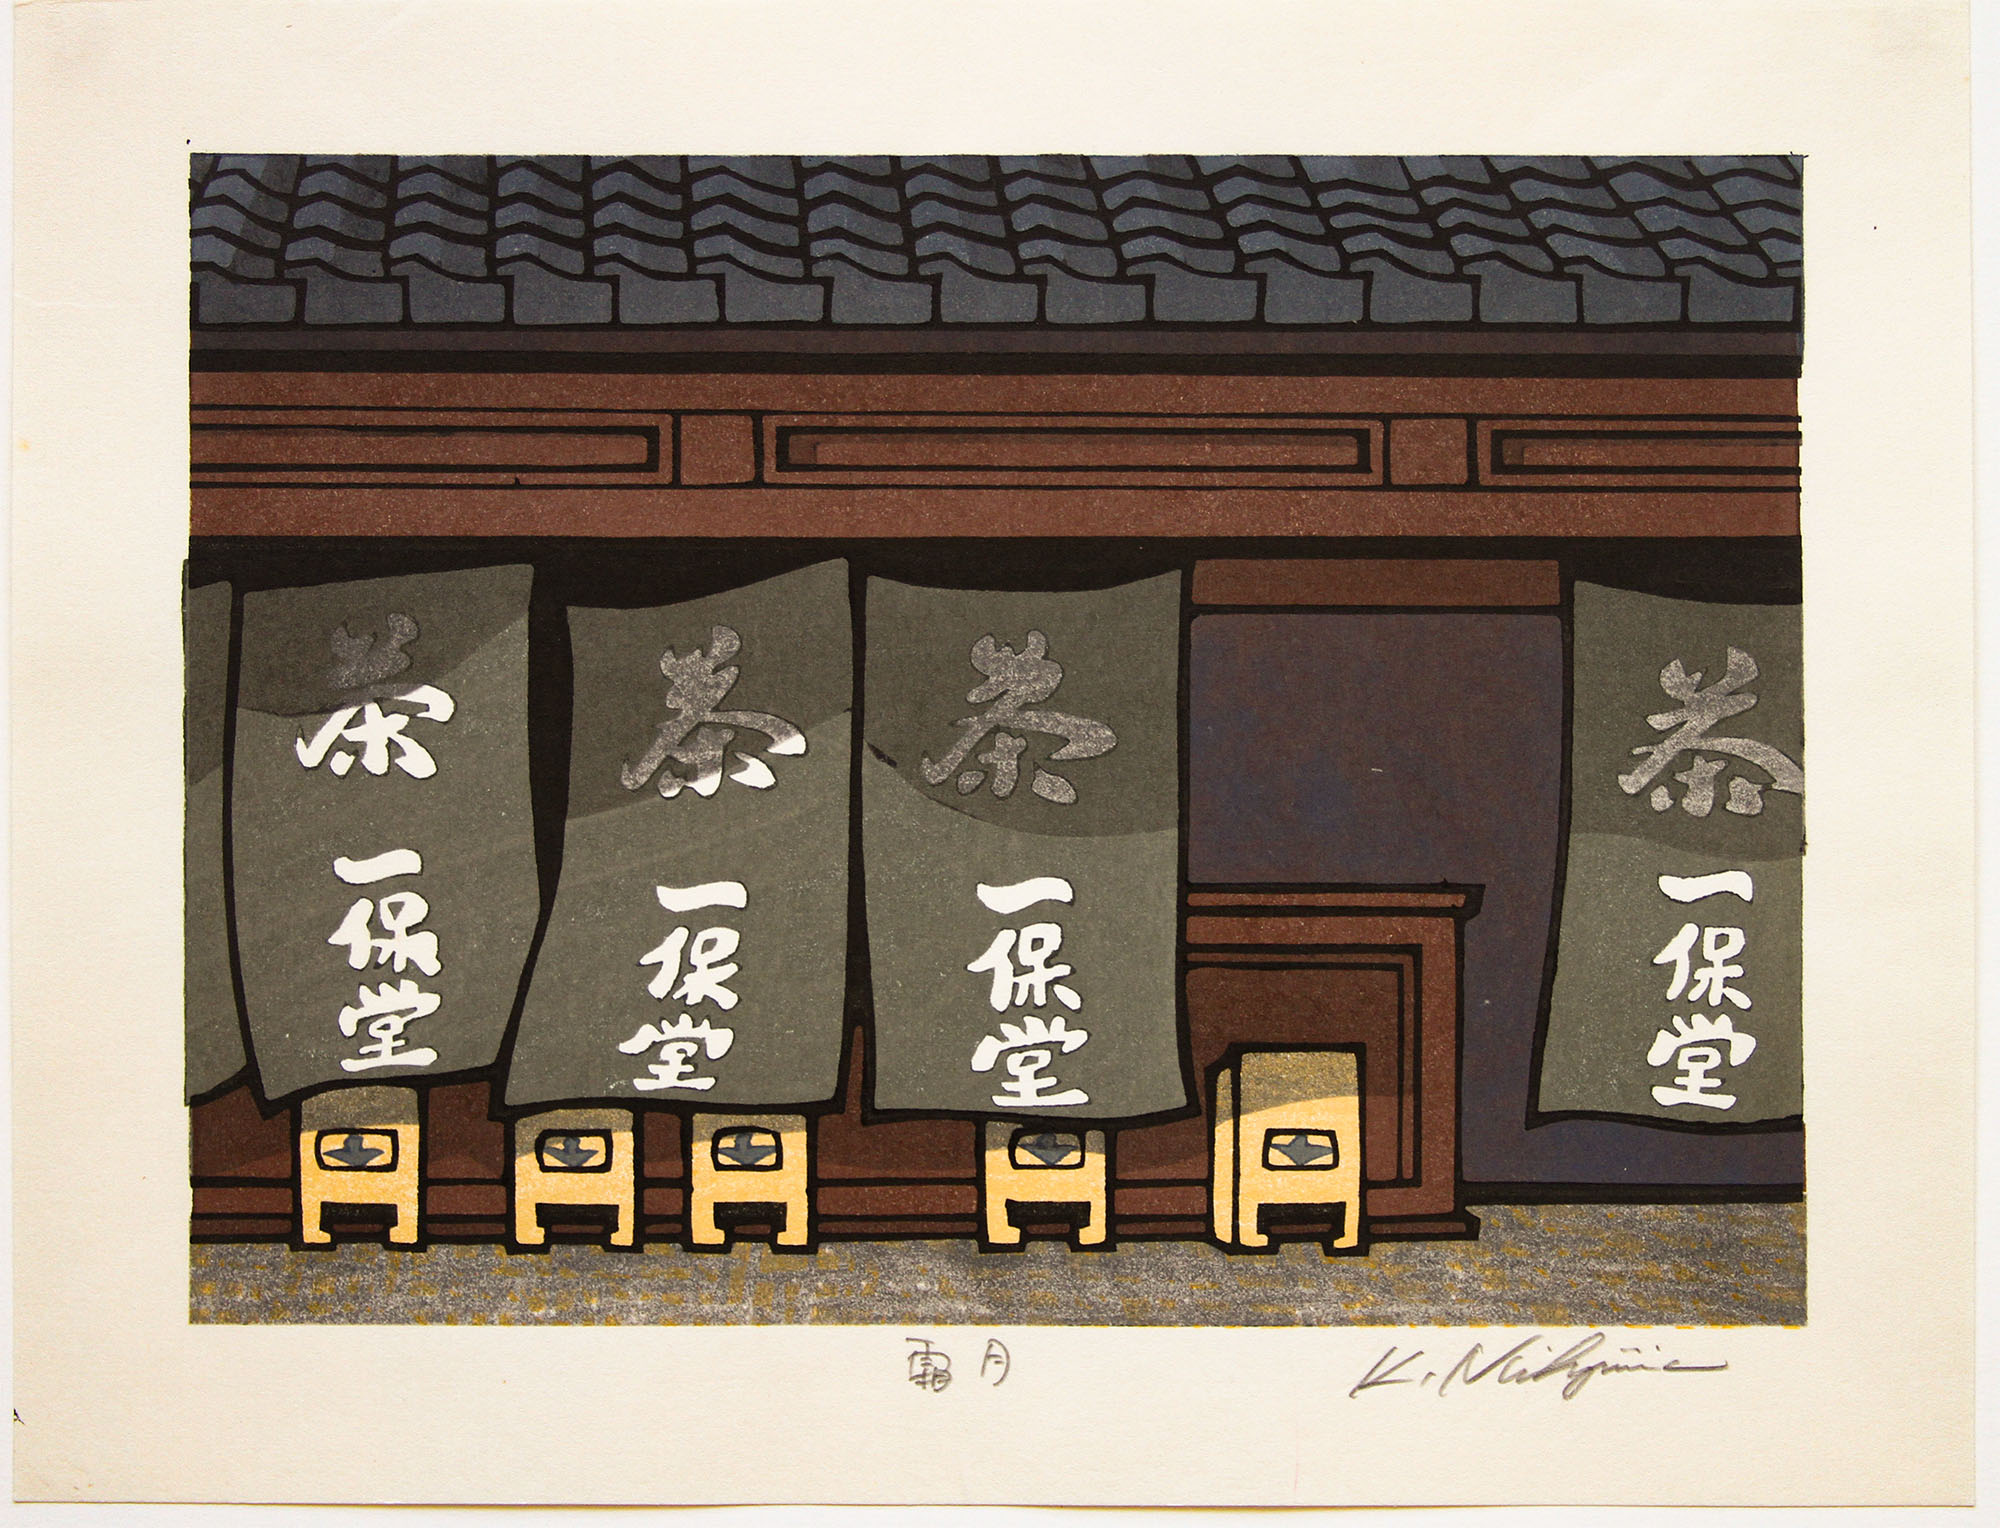 茶
一保堂
茶
一保堂
茶
一保堂
茶
一保堂
霜月
K. Nishijima